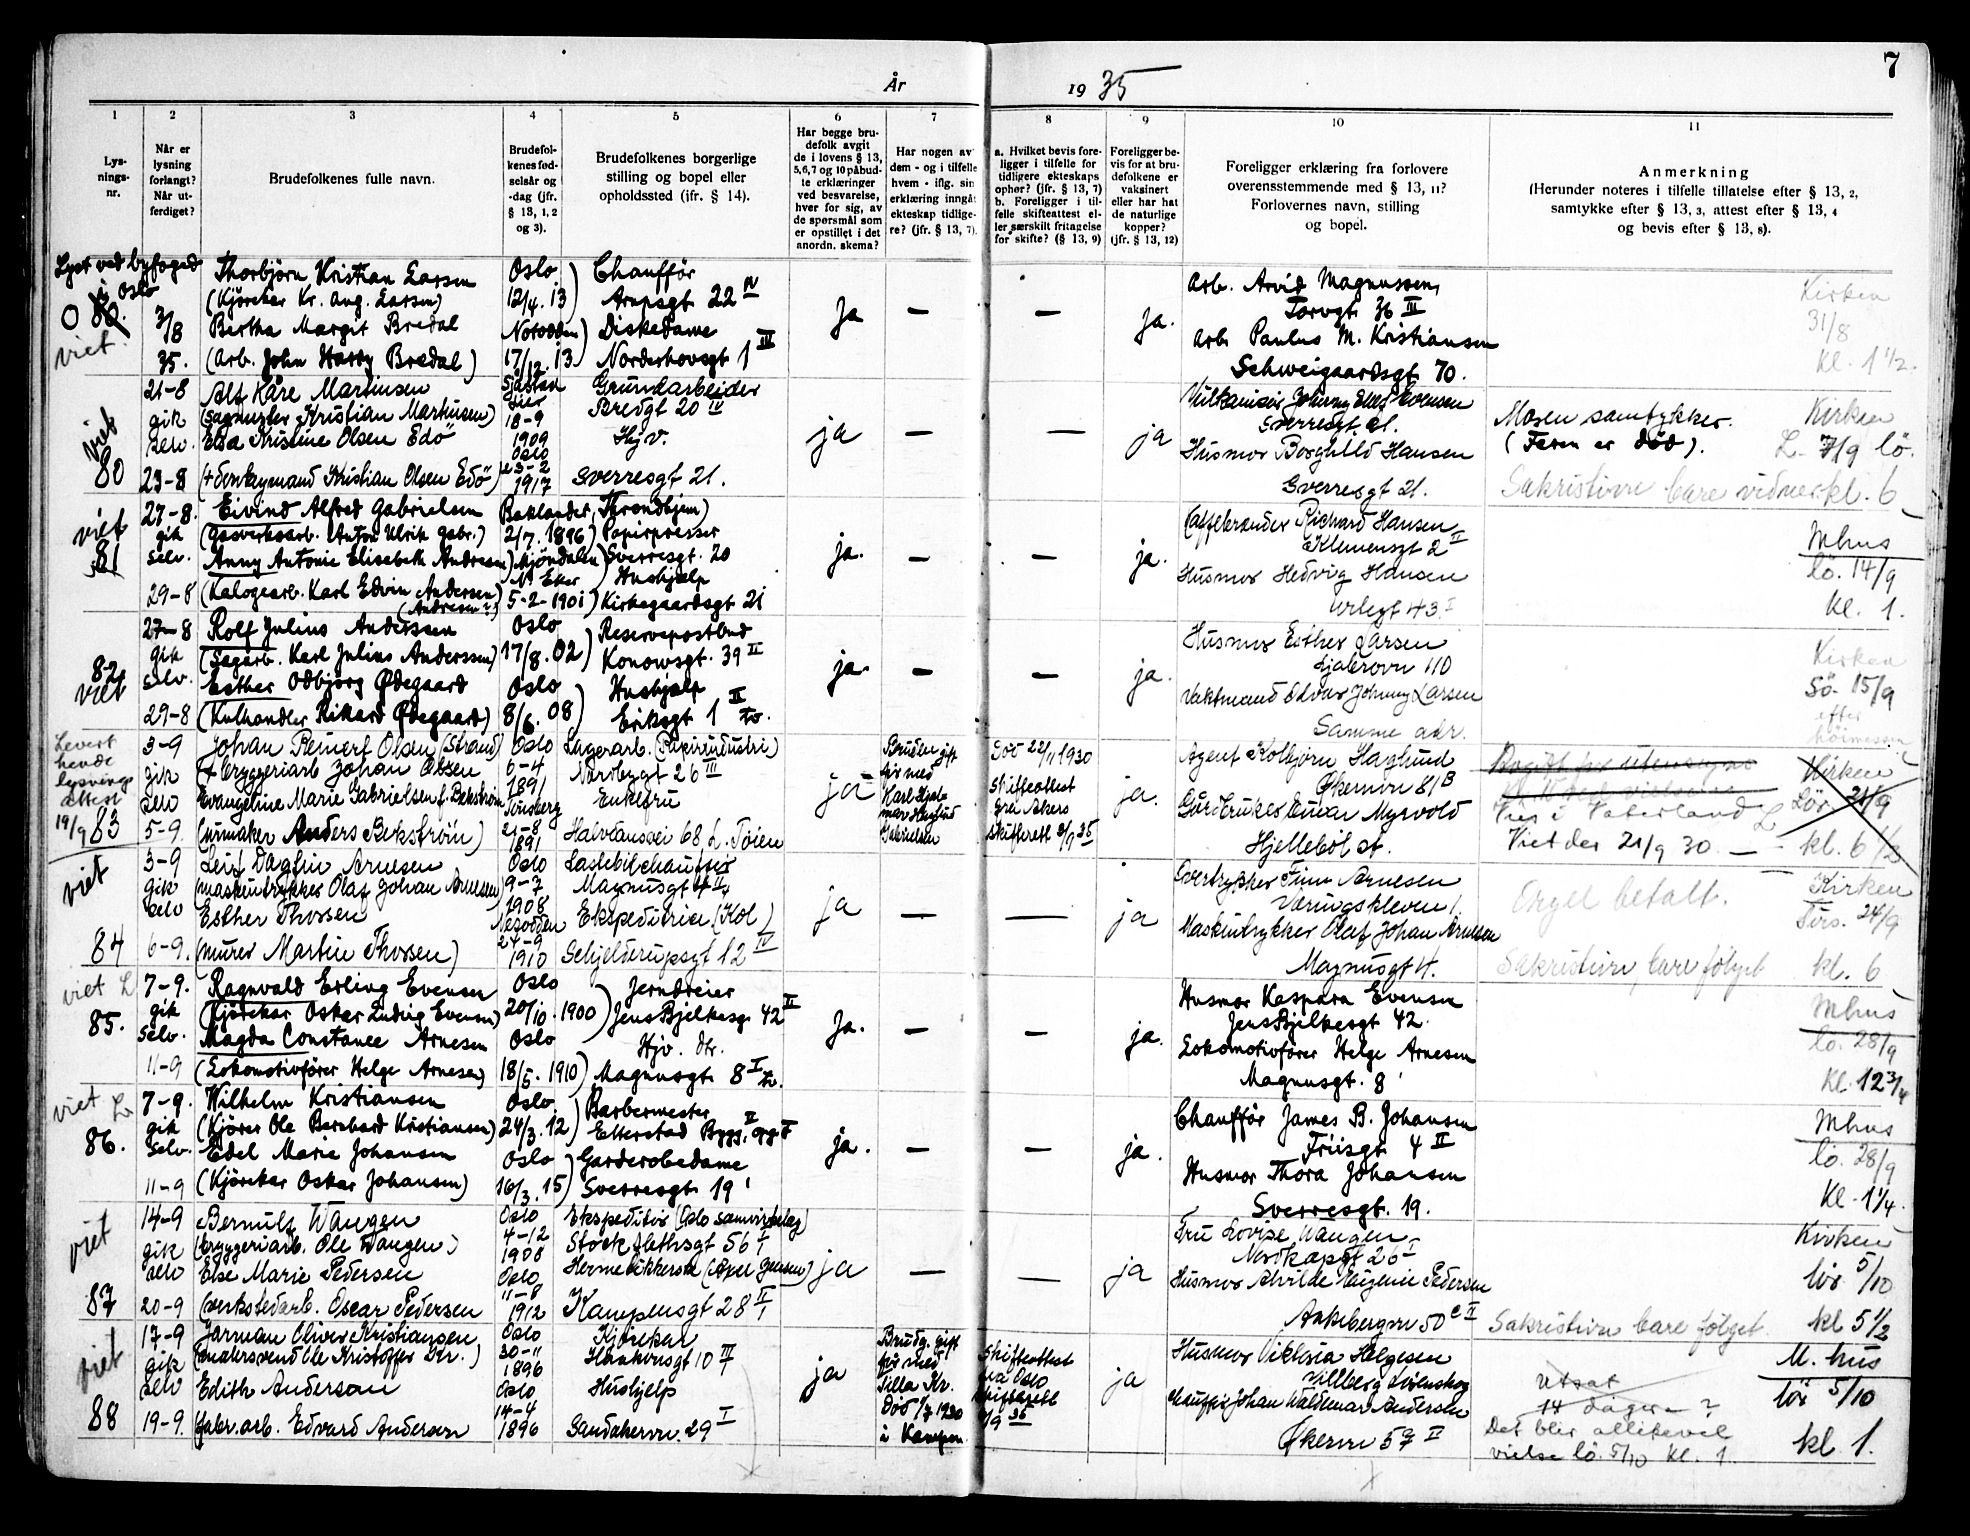 7
År 1935
1 2 3 4 5 6 7 8 9 10 11
Lys-
nings-
nr.
Når er
lysning
forlangt?
Når ut-
ferdiget?
Brudefolkenes fulle navn.
Brudefol-
kenes fød-
selsår og
-dag (jfr.
§ 13, 1, 2
og 3).
Brudefolkenes borgerlige
stilling og bopel eller
opholdssted (jfr. § 14).
Har begge bru-
defolk avgit
de i lovens § 13,
5,6,7 og 10 påbud-
te erklæringer
ved besvarelse,
hver for sig, av
de spørsmål som
er opstillet i det
anordn. skema?
Har nogen av
dem - og i tilfelle
hvem - iflg. sin
erklæring inngåt
ekteskap tidlige-
re? (jfr. § 13, 7).
a. Hvilket bevis fore-
ligger i tilfelle for
tidligere ekteskaps
ophør? (jfr. § 13, 7)
b. Foreligger i til-
felle skifteattest el-
ler særskilt fritagelse
for skifte? (§ 13, 9)
Foreligger be-
vis for at bru-
defolkene er
vaksinert
eller har hat
de naturlige
kopper?
(jfr. § 13, 12)
Foreligger erklæring fra forlovere
overensstemmende med § 13, 11?
Forlovernes navn, stilling
og bopel.
Anmerkning
(Herunder noteres i tilfelle tillatelse efter § 13, 2,
samtykke efter § 13, 3, attest efter § 13, 4
og bevis efter § 13, 8).
Lyst ved byfoged
i Oslo
O 80.
viet.
3/8
35.
Thorbjörn Kristian Larsen
(Kjörekar Kr. Aug. Larsen)
Bertha Margit Bredal
(Arb. John Harry Bredal)
Oslo
12/4. 13)
Notodden
17/12. 13)
Chaufför
Arupsgt. 22 IV
Diskedame
Norderhovsgt 1 III
Ja — — ja.
Arb. Arvid Magnussen,
Torvgt. 36 III
Arb. Paulus M. Kristiansen
Schweigaardsgt 70.
Kirken
31/8
Kl. 1 1/2.
viet
80
21-8
gik
selv.
23-8
Alf Kåre Martinsen
(Sagmester Kristian Martinsen)
Elsa Kristine Olsen Edö
Kristian Olsen Edö)
Lier
18-9
1909
Oslo
23-2
1917
Grundarbeider
Bredgt 20 IV
Hjv.
Sverresgt 21.
ja — — ja
Vulkanisør Johnny Elef Evensen
Sverresgt 21.
Husmor Borghild Hansen
Sverresgt 21.
Moren samtykker.
(Faren er död).
Sakristiven bare vidner
Kirken
L. 7/9 lö.
kl. 6
viet
81
27-8.
gik
selv.
29-8
Eivind Alfred Gabrielsen
(Gasverksarb. Anton Ulrik Gabr.)
Anny Antonie Elisabeth Andresen)
(Kalogearb. Karl Edvin Andersen)
(Andresen?)
Baklandet, Trondhjem)
2/7. 1896)
Mjöndalen)
N. Eker
5-2-1901)
Papirpresser
Sverresgt. 20
Hushjælp
Kirkegaardsgt 21
ja. — — ja.
Caffebrænder Richard Hansen
Klemensgt 2 II
Husmor Hedvig Hansen
Urtegt 43 I
Mhus
lö. 14/9
Kl. 1.
82
viet
27-8
gik
selv.
29-8
Rolf Julius Anderssen
(Sagarb. Karl Julius Anderssen)
Esther Odbjörg Ødegaard
(Kulhandler Rikard Ødegaard)
Oslo
17/8. 02)
Oslo
8/6. 08)
Reservepostbud
Konowsgt. 39 II
Hushjælp
Eriksgt 1 II tv.
ja. — — ja.
Husmor Esther Larsen
Ljabrovn 110
Vaktmand Edvar Johnny Larsen
Samme adr.
Kirken
Sö. 15/9
efter
höimessen
Levert
hende
lysnings
attest
19/9 83
3-9
gik
selv
5-9.
Johan Reinert Olsen (Strand)
(+ bryggeriarb Johan Olsen
Evangeline Marie Gabrielsen f. Bekström
(urmaker Anders Bekström)
Oslo
6-4
1891
Tönsberg
21-8
1891
Lagerarb. (Papirindustri)
Nordbygt 26 III
Enkefru
Halvdansvei 68, L. Töien
ja
Bruden gift
før med
Karl Hjal-
mar Haglund
Gabrielsen
Död 22/11 1930
Skifteattest
fra Akers
skifterett 3/9 35
ja.
Agent Kolbjörn Haglund
Økernvn 81 B
Gårdbruker Einar Myrvold
Hjelleböl st.
Vies i Vaterland
Viet der 21/9 30. —
Kirken
Lör 21/9
kl. 6 1/2
viet
84
3-9
gik
selv
6-9.
Leif Dagfin Arnesen
(maskintrykker Olaf Johan Arnesen)
Esther Thorsen
(murer Martin Thorsen)
Oslo
9-7
1908
Nesodden
24-9
1910
Lastebilchauffør
Magnusgt 4 II
Ekspeditrice (Kol.)
Schjelderupsgt 12 IV
ja — — ja
Overtrykker Finn Arnesen
Væringskleven 1.
Maskintrykker Olaf Johan Arnesen
Magnusgt 4.
Orgel betalt.
Sakristiven bare fölget
Kirken
Tirs. 24/9
kl. 6
viet L
85.
7-9.
gik
selv.
11-9
Ragnvald Erling Evensen
(Kjörekar Oskar Ludvig Evensen)
Magda Constance Arnesen
(Lokomotivförer Helge Arnesen)
Oslo
20/10. 1900)
Oslo
18/5. 1910)
Jerndreier
Jens Bjelkesgt. 42 II
Hjv. dtr.
Magnusgt. 8 I tv.
Ja. — — ja.
Husmor Kaspara Evensen
Jens Bjelkesgt 42.
Lokomotivförer Helge Arnesen
Magnusgt. 8
Mhus
lö. 28/9
Kl. 12 3/4
viet L
86.
7-9.
gik
selv.
11-9
Wilhelm Kristiansen
(Kjörer Ole Bernhard Kristiansen)
Edel Marie Johansen
(Kjörekar Oskar Johansen)
Oslo
24/3. 12)
Oslo
16/3. 15)
Barbermester
Etterstad Bygg. II
Garderobedame
Sverresgt 19
ja. — — ja.
Chaufför James B. Johansen
Friisgt. 4 II
Husmor Thora Johansen
Sverresgt. 19.
Mhus
lö. 28/9
Kl. 1 1/4.
viet
87
14-9
gik
selv
20-9
Bernulf Wangen
(bryggeriarb. Ole Wangen.)
Else Marie Pedersen
(verkstedarb. Oscar Pedersen
Oslo
4-12
1908
Oslo
11-8
1912
Ekspeditör (Oslo samvirkelag)
Stockflethsgt 56 I
(Axel Jensen)
Kampensgt 28 II
ja — — ja
Fru Lovise Wangen
Nordkapgt 26 I
Husmor Alvilde Eugenie Pedersen
Ankebergvn 50 c II
Sakristiven bare fölget
Kirken
lör 5/10
kl 5 1/2
viet
88
17-9
gik
selv
19-9.
Jarman Oliver Kristiansen
(malersvend Ole Kristoffer Kr.)
Edith Andersen
(fabr.arb. Edvard Andersen
Oslo
30-11
1896
Oslo
14-4
1896
Kjörekar
Haakonsgt 10 III
Hushjelp
Sandakervn. 29 I
ja
Brudg. gift
før med
Silla Kr.
Död 1/7 1930
i Kampen.
Skifteattest
fra Oslo
skifterett
9/9 35
ja
Husmor Viktoria Helgesen
Johan Waldemar Andersen
Økernvn 59 II
Utsat
14 dager ?
Det blir allikevel
vielse lö. 5/10 Kl. 1.
M. hus
lör 5/10
kl 1.